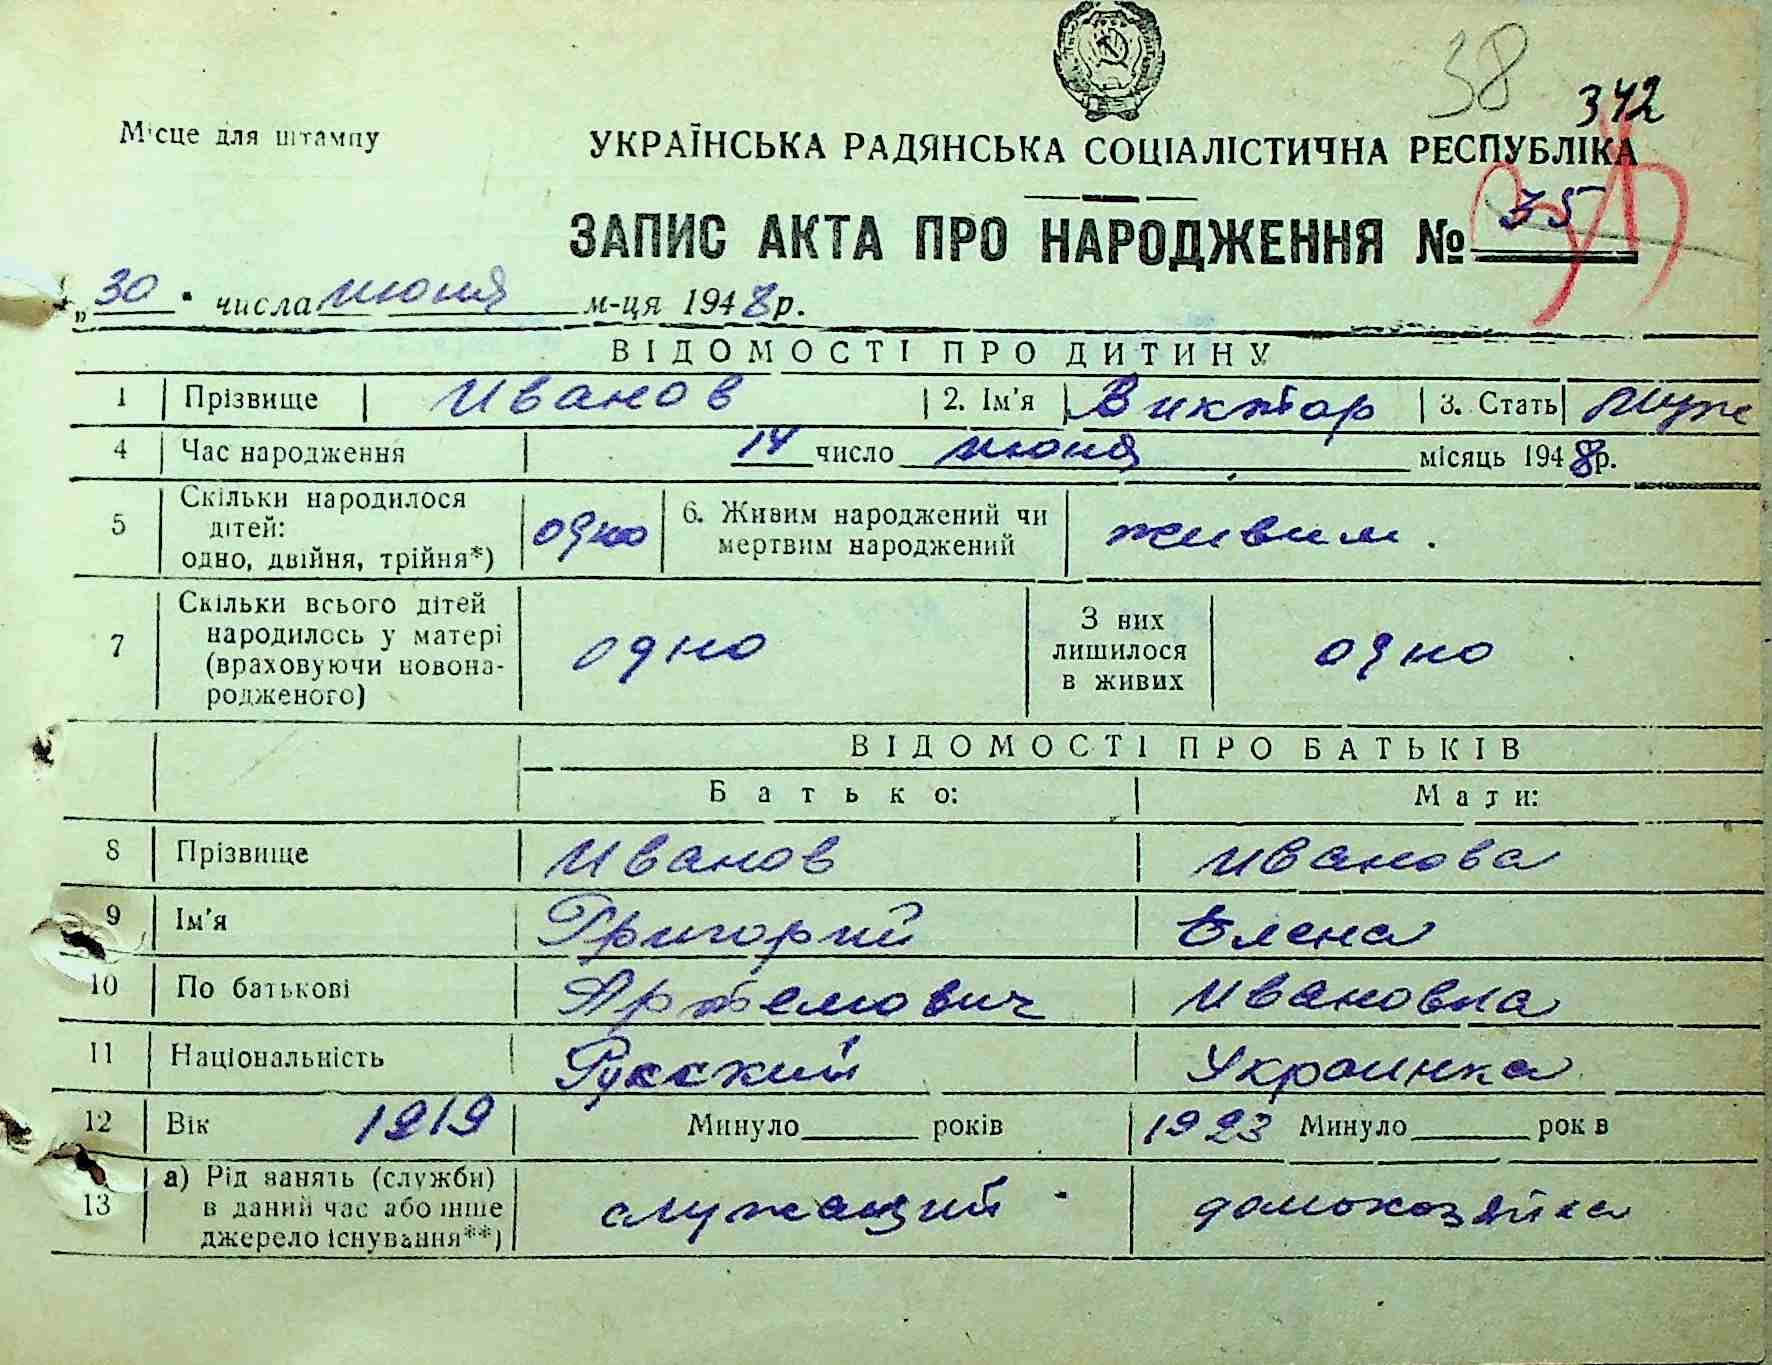 38
342
Місце для штампу
УКРАЇНСЬКА РАДЯНСЬКА СОЦІАЛІСТИЧНА РЕСПУБЛІКА
ЗАПИС АКТА ПРО НАРОДЖЕННЯ № 35
„30" числа июня м-ця 1948 р.
ВІДОМОСТІ ПРО ДИТИНУ
1 Прізвище Иванов 2. Ім'я Виктор 3. Стать муж
4 Час народження 14 число июня місяць 1948 р.
5 Скільки народилося дітей: одно, двійня, трійня*) одно 6. Живим народжений чи мертвим народжений живим.
7 Скільки всього дітей народилось у матері (враховуючи новонародженого) одно З них лишилося в живих одно
ВІДОМОСТІ ПРО БАТЬКІВ
Батько: Мати:
8 Прізвище Иванов Иванова
9 Ім'я Григорий Елена
10 По батькові Артемович Ивановна
11 Національність Русский Украинка
12 Вік 1919 Минуло років 1923 Минуло рок в
13 а) Рід занять (служби) в даний час або інше джерело існування**) служащий домохозяйка